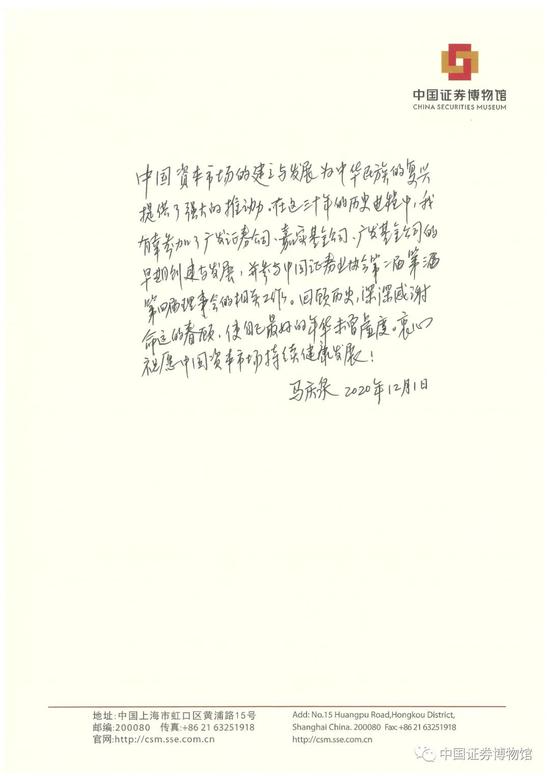 中国证券博物馆
CHINA SECURITIES MUSEUM
中国资本市场的建立与发展为中华民族的复兴
提供了强大的推动力。在这三十年的历史进程中,我
有幸参加了广发证券公司、嘉实基金公司、广发基金公司的
早期创建与发展,并参与中国证券业协会第二届第三届
第四届理事会的相关工作。回顾历史,深深感谢
命运的眷顾,使自己最好的年华未曾虚度。衷心
祝愿中国资本市场持续健康发展!
马庆泉 2020年12月1日
地址:中国上海市虹口区黄浦路15号
邮编:200080 传真:+86 21 63251918
官网:http://csm.sse.com.cn
Add: No.15 Huangpu Road,Hongkou District,
Shanghai China. 200080 Fax:+86 21 63251918
http://csm.sse.com.cn
中国证券博物馆